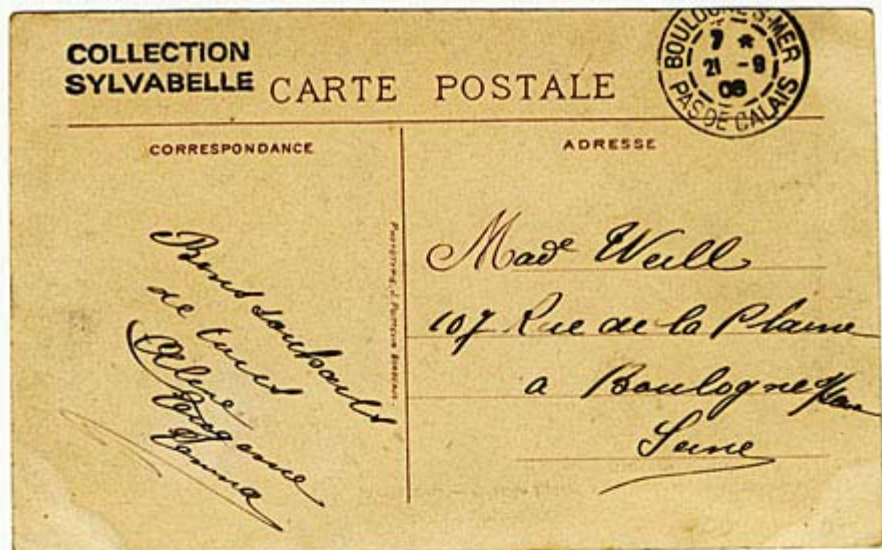 COLLECTION
SYLVABELLE
CARTE POSTALE
BOULOGNE-S-MER
7 *
21 - 9
08
PAS DE CALAIS
CORRESPONDANCE
ADRESSE
Bons souhaits
de tous
Made Weill
107 Rue de la Plaine
a Boulogne
Seine